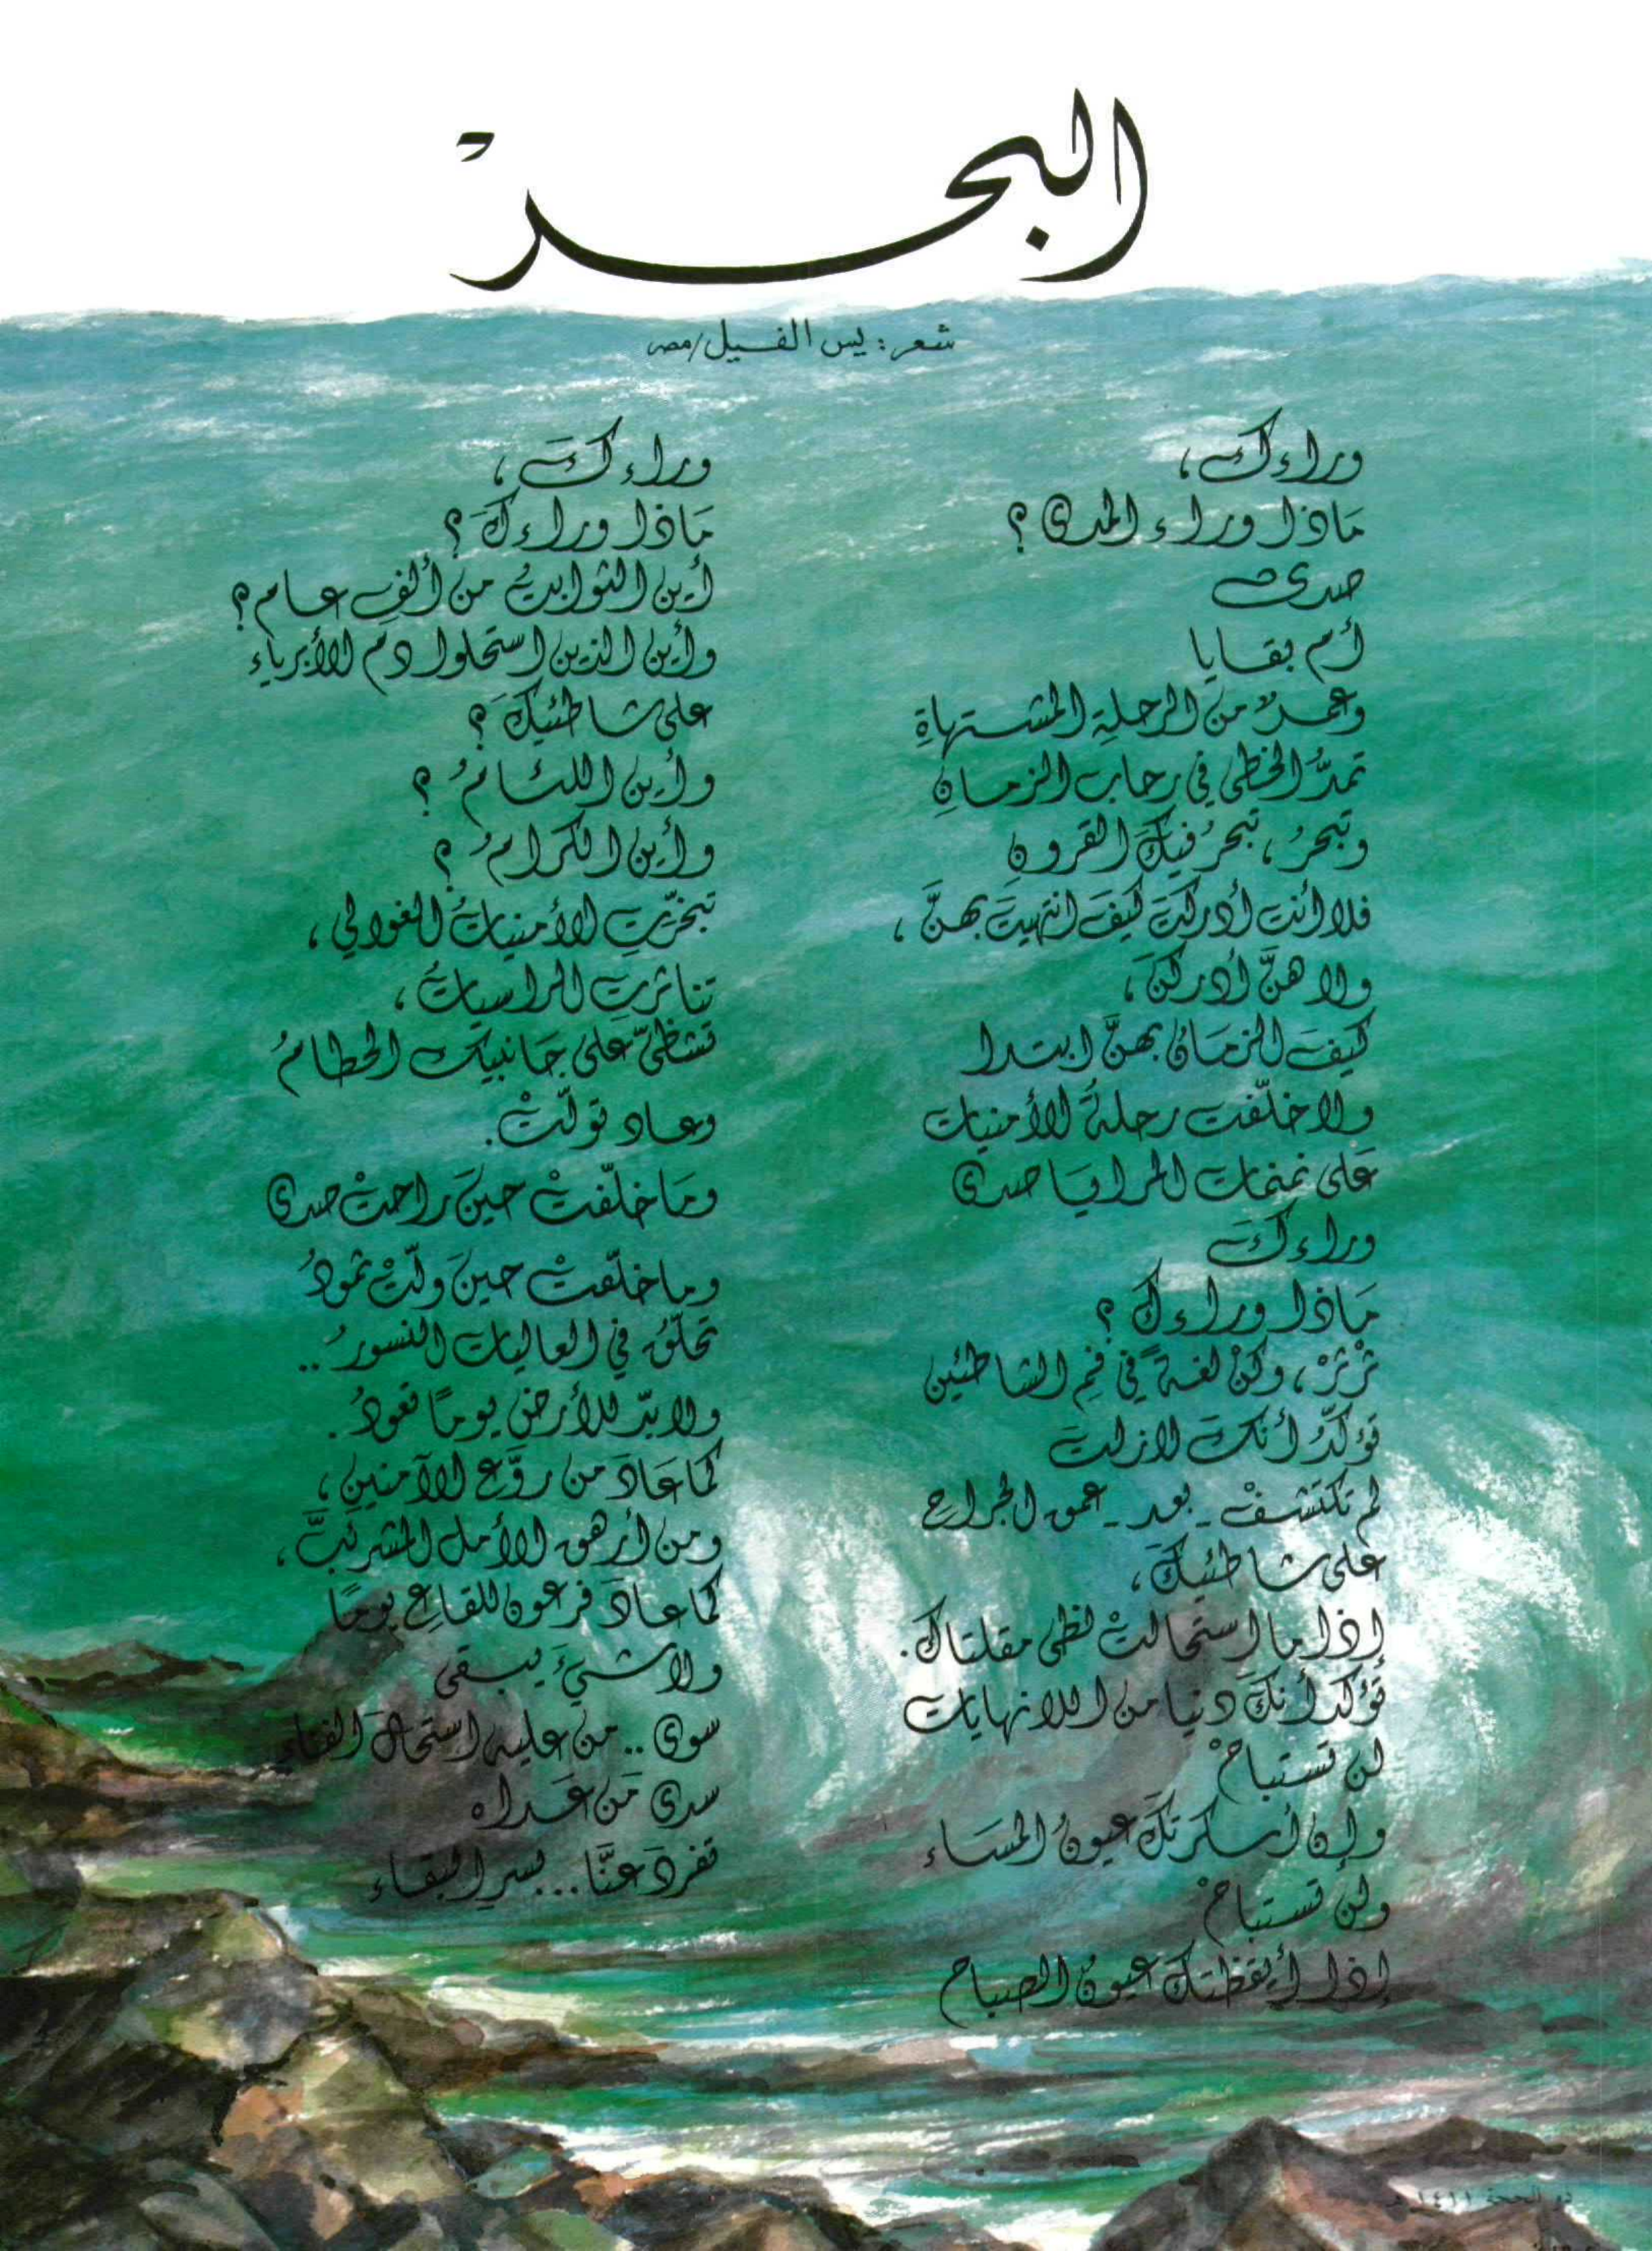 البحرْ
شعر: يس الفيل/مصر
وراءك،
مَاذا وراء المدى؟
صدى
أم بقايا
وعمرٌ من الرحلةِ المشتهاةِ
تمدُّ الخطى في رحاب الزمانِ
وتبحرُ، تبحرُ فيكَ القرون
فلا أنت أدركتَ كيفَ انتهيتَ بهنَّ،
ولا هنَّ أدركنَ،
كيفَ الزمَانُ بهنَّ ابتدا
ولا خلّفت رحلةُ الأمنيات
عَلى نمنمات المرايَا صدى
وراءكَ
مَاذا وراءكَ؟
ثرْثرْ، وكنْ لغةً في فمِ الشاطئين
تؤكّدُ أنكَ لازلتَ
لم تكتشفْ - بعد - عمق الجراح
على شاطئيكَ،
إذا ما استحالتْ لظى مقلتاك.
تُؤكدُ أنكَ دنيا من اللانهايات
لن تستباحْ
وإن أسكرتكَ عيونُ المسَاء
ولن تستباحْ
إذا أيقظتكَ عيونُ الصباح
وراءكَ،
مَاذا وراءكَ؟
أين الثوابتُ من ألفِ عام؟
وأين الذين استحلوا دمَ الأبرياءِ
على شاطئيكَ؟
وأين اللئامُ؟
وأين الكرامُ؟
تبخرّتِ الأمنياتُ الغوالي،
تناثرتِ الراسياتُ،
تشظىّ على جَانبيك الحطامُ
وعاد تولّتْ.
ومَا خلّفتْ حينَ راحتْ صدى
وما خلّفتْ حينَ ولّتْ ثمودُ
تحلّقُ في العاليات النسورُ..
ولابدّ للأرض يومًا تعودُ.
كمَا عَادَ من روَّع الآمنين،
ومن أرهق الأمل المشرئبَّ،
كما عادَ فرعون للقاعِ يومًا
ولا شيءَ يبقى
سوى .. من عليه استحالَ الفناء
سدى مَن عَداه
تفردَ عنَّا... بسرِ البقاء
ذو الحجة ١٤١١هـ